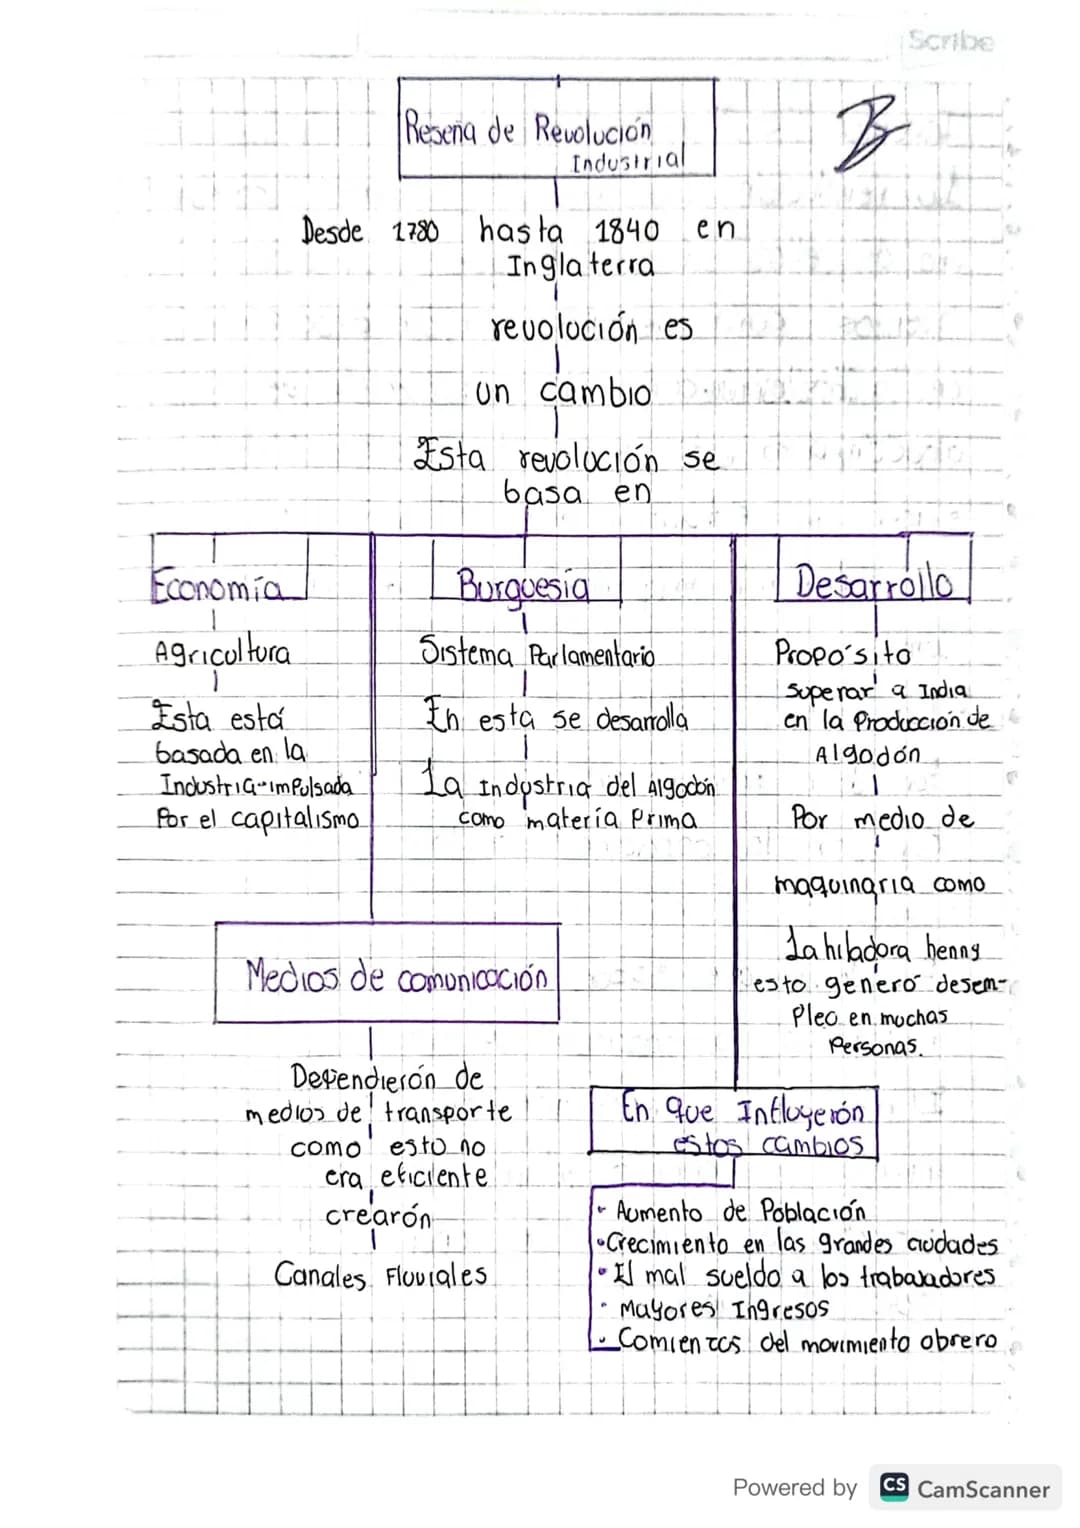 Scribe
Reseña de Revolución
Industrial
Desde 1780 hasta 1840 en
Inglaterra
revolución es
un cambio
Esta revolución se
basa en
Economía
Agricultura
Esta está
basada en la
Industria impulsada
Por el capitalismo
Burguesia
Sistema Parlamentario
En esta se desarrolla
La Industria del Algodón
como materia Prima
Desarrollo
Propo´sito
superar a India
en la Producción de
Algodón
Por medio de
maquinaria como
La hiladora henny
esto generó desem-
Pleo en muchas
Personas.
Medios de comunicación
Defendierón de
medios de transporte
como esto no
era eficiente
crearón
Canales Fluviales
En que Influyerón
estos cambios
• Aumento de Población
• Crecimiento en las grandes ciudades
• El mal sueldo a los trabajadores
• Mayores Ingresos
• Comienzos del movimiento obrero
Powered by CS CamScanner